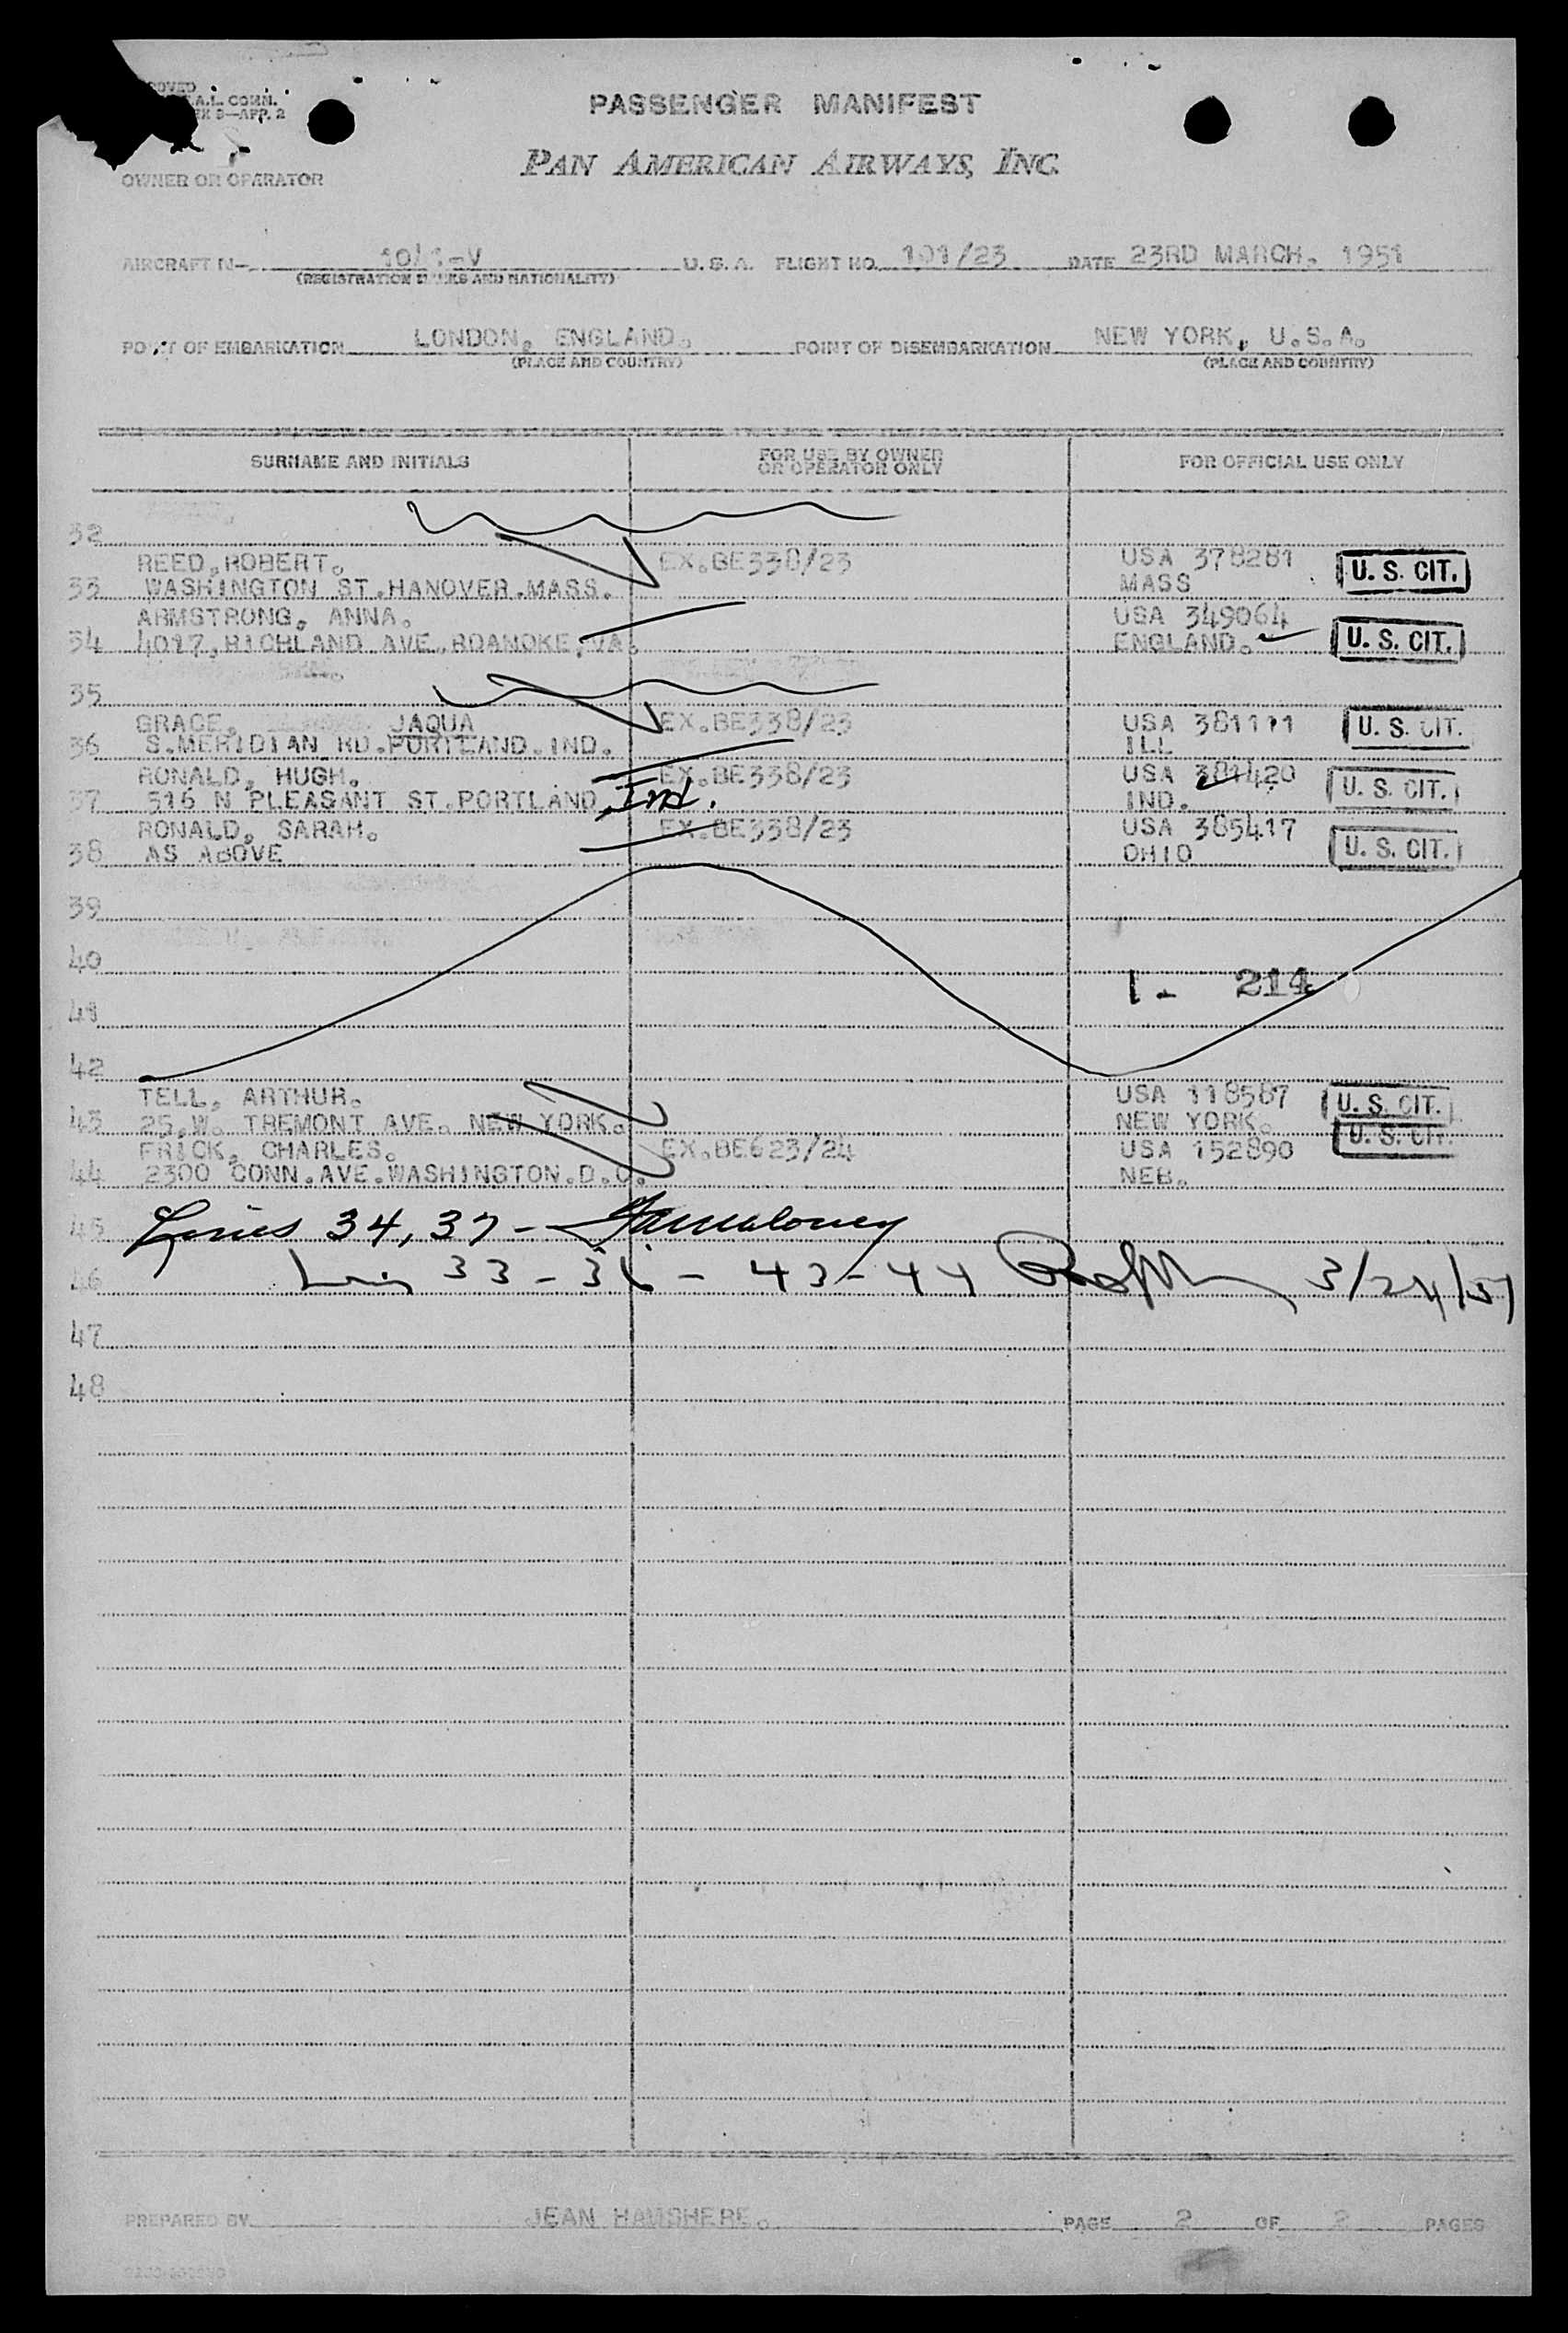 A.L. COMN.
APP. 2
PASSENGER MANIFEST
PAN AMERICAN AIRWAYS, INC.
OWNER OR OPERATOR
AIRCRAFT N- U. S. A. FLIGHT NO. 101/23 DATE 23RD MARCH. 1951
(REGISTRATION MARKS AND NATIONALITY)
POINT OF EMBARKATION LONDON, ENGLAND. POINT OF DISEMBARKATION NEW YORK, U.S.A.
(PLACE AND COUNTRY) (PLACE AND COUNTRY)
SURNAME AND INITIALS FOR USE BY OWNER OR OPERATOR ONLY FOR OFFICIAL USE ONLY
32
REED,ROBERT. EX.BE338/23 USA 378281 U. S. CIT.
33 WASHINGTON ST.HANOVER.MASS. MASS
ARMSTRONG, ANNA. USA 349064
34 4017,RICHLAND AVE.ROANOKE,VA. ENGLAND. U. S. CIT.
35
GRACE, JAQUA EX.BE338/23 USA 381111 U. S. CIT.
36 S.MERIDIAN RD.PORTLAND.IND. ILL
RONALD, HUGH. EX.BE338/23 USA 381420 U. S. CIT.
37 516 N PLEASANT ST.PORTLAND, Ind. IND.
RONALD, SARAH. EX.BE338/23 USA 385417
38 AS ABOVE OHIO U. S. CIT.
39
40
1 - 214
41
42
TELL, ARTHUR. USA 118587 U. S. CIT.
43 25,W. TREMONT AVE. NEW YORK. NEW YORK.
FRICK, CHARLES. EX.BE623/24 USA 152890 U. S. CIT.
44 2300 CONN.AVE.WASHINGTON.D.C. NEB.
45 Lines 34, 37 -
46 33 - 36 - 43 - 44 3/24/51
47
48
PREPARED BY JEAN HAMSHERE. PAGE 2 OF 2 PAGES